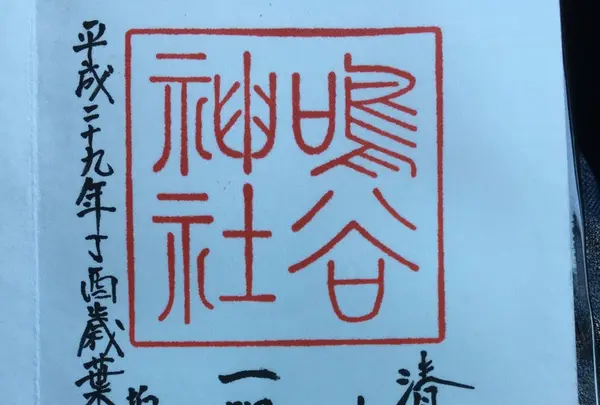 鳴谷
神社
清
一
平成二十九年丁酉歳葉